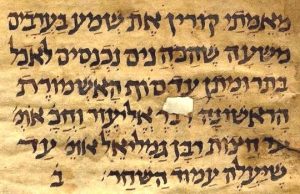 מאמתי קורין את שמע בערבים
משעה שהכהנים נכנסים לאכל
בתרומתן עד סוף האשמורת
הראשונה דבר אליעזר וחכ אומ'
עד חצות רבן גמליאל אומ' עד
שיעלה עמוד השחר
ב